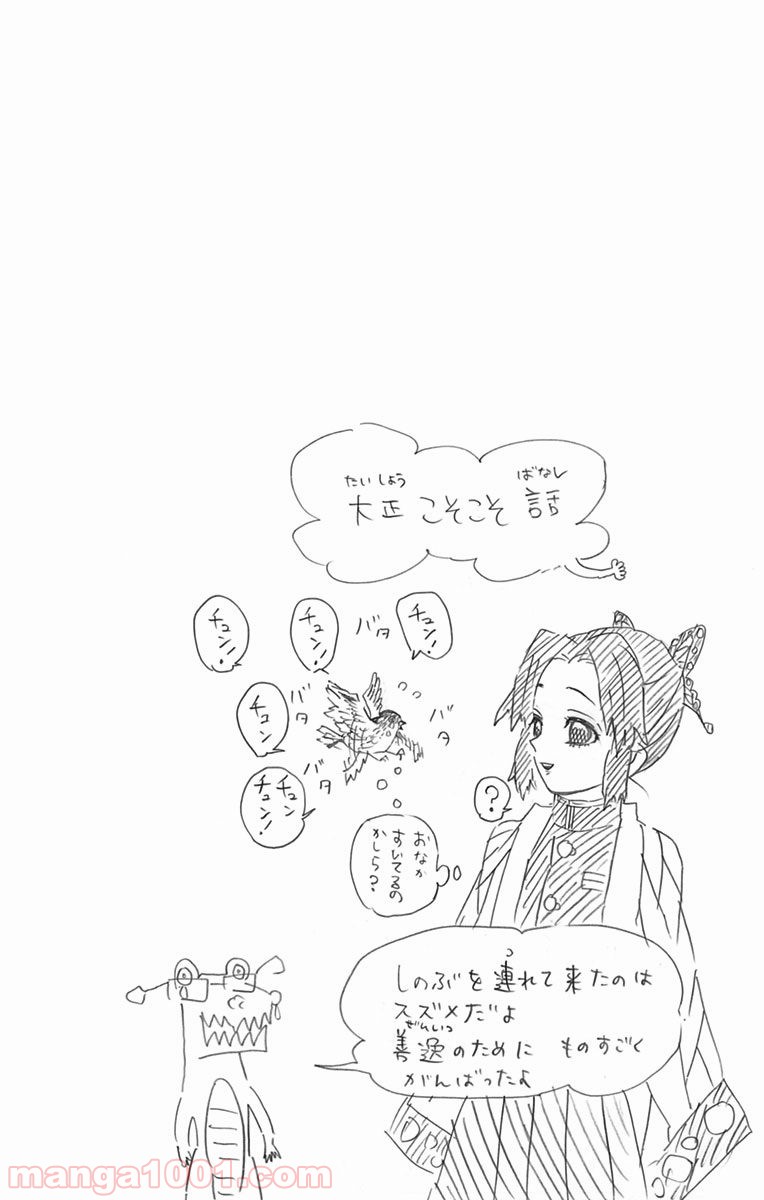 たいしょう ばなし
大正こそこそ話
チュン!
バタ
チュン!!
チュン!!
バタ
バタ
チュン
バタ
チュン
チュン!
?
おなか
すいてるの
かしら?
しのぶを連れて来たのは
つ
スズメだよ
ぜんいつ
善逸のために ものすごく
がんばったよ
manga1001.com